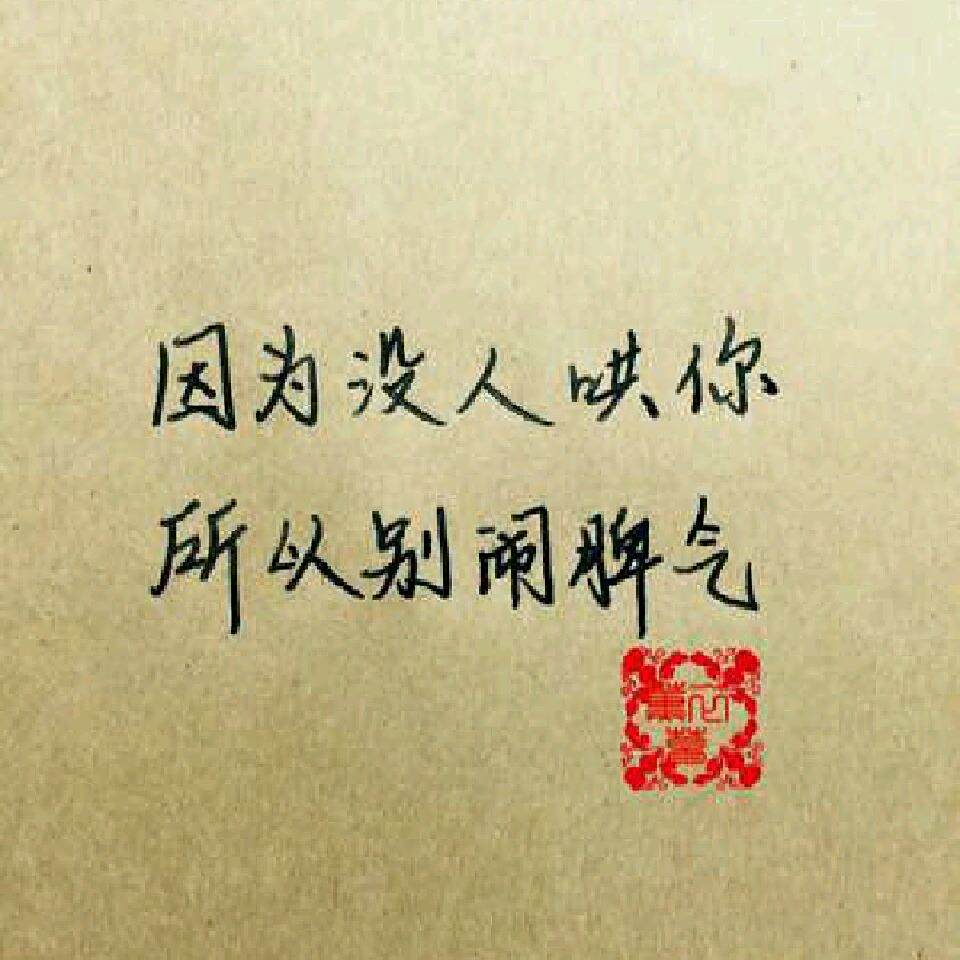 因为没人哄你
所以别闹脾气